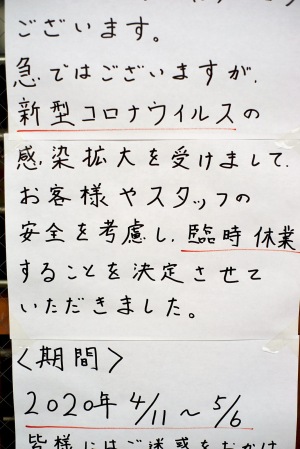 ございます。
急ではございますが、
新型コロナウイルスの
感染拡大を受けまして、
お客様やスタッフの
安全を考慮し、臨時休業
することを決定させて
いただきました。
〈期間〉
2020年 4/11〜5/6
皆様にはご迷惑をおかけ